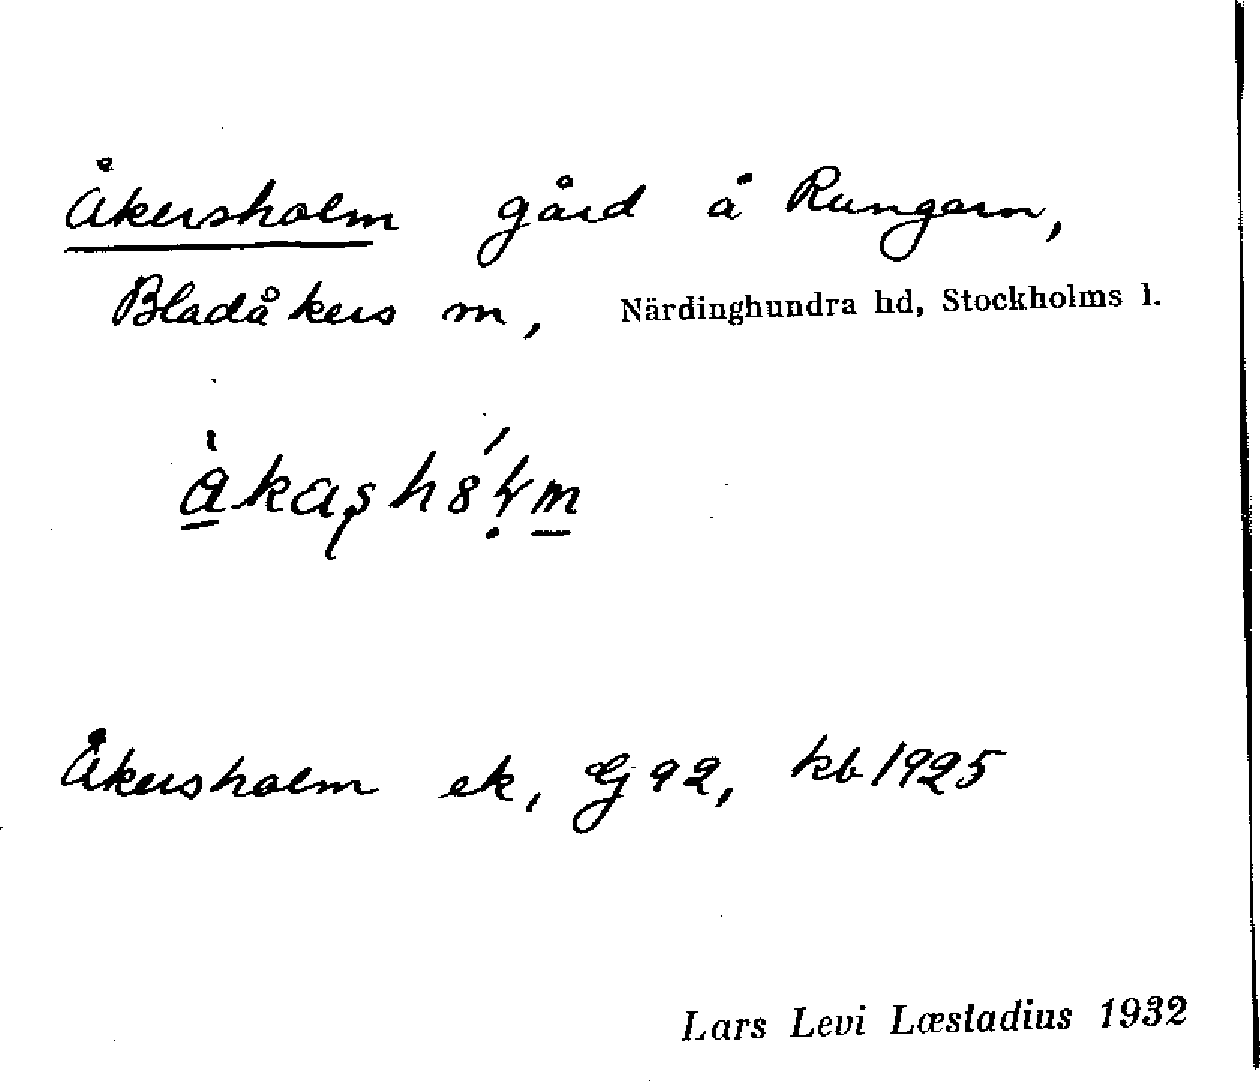 Åkersholm gård å Rungarn,
Bladåkers sn, Närdinghundra hd, Stockholms l.
Åkersholm ek, Gj 92, kb 1925
Lars Levi Læstadius 1932